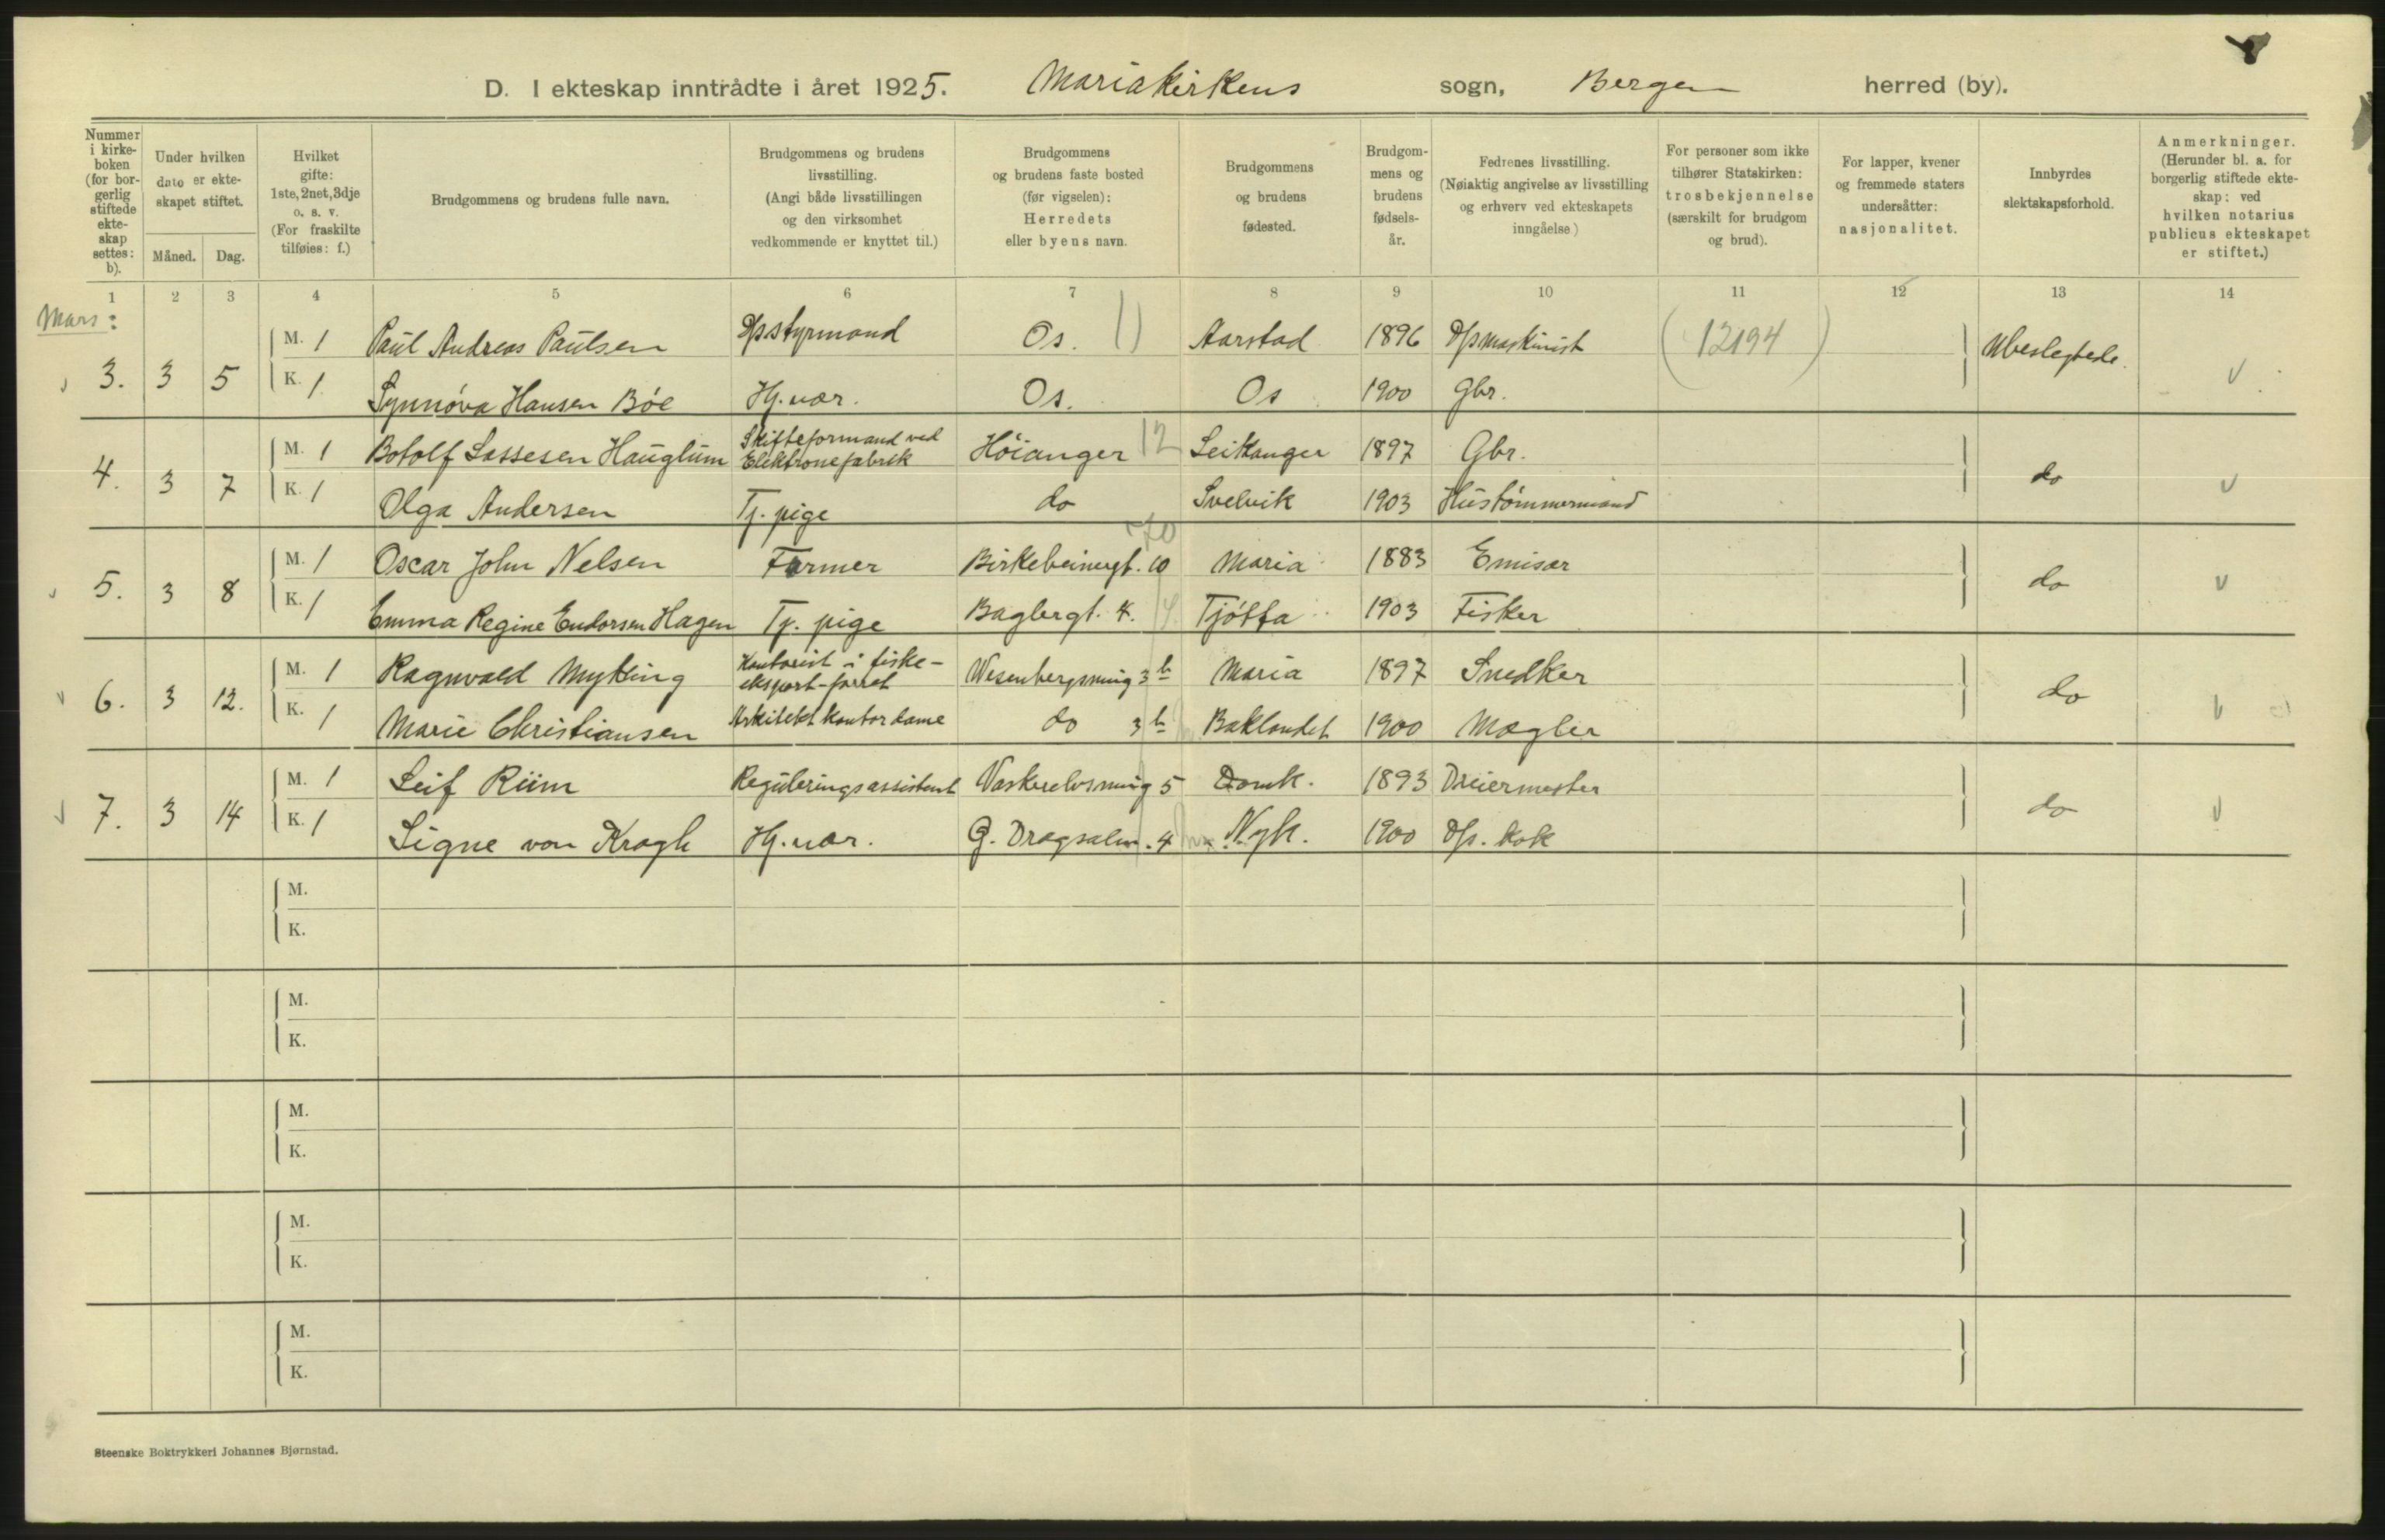 D. I ekteskap inntrådte i året 1925. Mariakirkens sogn, Bergen herred (by).
Nummer i kirkeboken (for borgerlig stiftede ekteskap settes: b).
Under hvilken dato er ekteskapet stiftet.
Måned. Dag.
Hvilket gifte: 1ste, 2net, 3dje o. s. v. (For fraskilte tilføies: f.)
Brudgommens og brudens fulle navn.
Brudgommens og brudens livsstilling. (Angi både livsstillingen og den virksomhet vedkommende er knyttet til.)
Brudgommens og brudens faste bosted (før vigselen): Herredets eller byens navn.
Brudgommens og brudens fødested.
Brudgommens og brudens fødselsår.
Fedrenes livsstilling. (Nøiaktig angivelse av livsstilling og erhverv ved ekteskapets inngåelse)
For personer som ikke tilhører Statskirken: trosbekjennelse (særskilt for brudgom og brud).
For lapper, kvener og fremmede staters undersåtter: nasjonalitet.
Innbyrdes slektskapsforhold.
Anmerkninger. (Herunder bl. a. for borgerlig stiftede ekteskap: ved hvilken notarius publicus ekteskapet er stiftet.)
1 2 3 4 5 6 7 8 9 10 11 12 13 14
Mars:
3. 3 5 M. 1 Paul Andreas Paulsen Dpsstyrmand Os. 11 Aarstad 1896 Dpmaskinist (12194) Ubeslegtede.
K. 1 Synnóva Hansen Bóe Hj. vær. Os. Os 1900 Gbr.
4. 3 7 M. 1 Botolf Lassesen Hauglum Skifteformand ved Elektronefabrik Hóianger 12 Leikanger 1897 Gbr. do
K. 1 Olga Andersen Tj. pige do Svelvik 1903 Hustómmermand
5. 3 8 M. 1 Oscar John Nelsen Farmer Birkebeinergt. 10 Maria 1883 Emisær do
K. 1 Emma Regine Endorsen Hagen Tj. pige Baglergt. 4. Tjótta 1903 Fisker
6. 3 12. M. 1 Ragnvald Myking Kontorist i fiske-eksport-forret Wesenbergsmug 3 b Maria 1897 Snedker do
K. 1 Marie Christiansen Arkitekt kontordame do 3 b Baklandet 1900 Mægler
7. 3 14 M. 1 Leif Riim Reguleringsassistent Vaskerelvsmug 5 Domk. 1893 Dreiermester do
K. 1 Signe von Kragh Hj. vær. G. Dragsalm. 4 Nyk. 1900 Dp. kok
M.
K.
M.
K.
M.
K.
M.
K.
M.
K.
Steenske Boktrykkeri Johannes Bjørnstad.